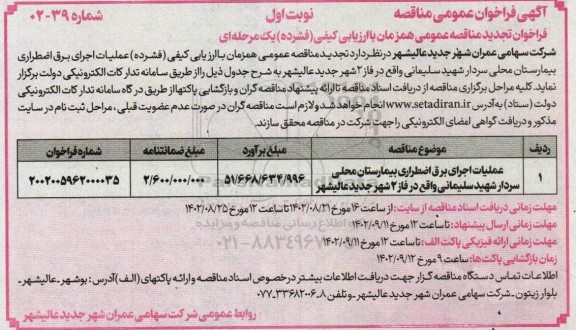 آگهی فراخوان عمومی مناقصه
نوبت اول
شماره ۳۹-۰۲
فراخوان تجدید مناقصه عمومی همزمان با ارزیابی کیفی (فشرده) یک مرحله‌ای
شرکت سهامی عمران شهر جدید عالیشهر در نظر دارد تجدید مناقصه عمومی همزمان با ارزیابی کیفی (فشرده) عملیات اجرای برق اضطراری
بیمارستان محلی سردار شهید سلیمانی واقع در فاز ۲ شهر جدید عالیشهر به شرح جدول ذیل را از طریق سامانه تدارکات الکترونیکی دولت برگزار
نماید. کلیه مراحل برگزاری مناقصه از دریافت اسناد مناقصه تا ارائه پیشنهاد مناقصه گران و بازگشایی پاکتها از طریق درگاه سامانه تدارکات الکترونیکی
دولت (ستاد) به آدرس www.setadiran.ir انجام خواهد شد و لازم است مناقصه گران در صورت عدم عضویت قبلی، مراحل ثبت نام در سایت
مذکور و دریافت گواهی امضای الکترونیکی را جهت شرکت در مناقصه محقق سازند.
ردیف موضوع مناقصه مبلغ برآورد مبلغ ضمانتنامه شماره فراخوان
۱ عملیات اجرای برق اضطراری بیمارستان محلی
سردار شهید سلیمانی واقع در فاز ۲ شهر جدید عالیشهر
۵۱/۶۶۸/۶۳۴/۹۹۶ ۲/۶۰۰/۰۰۰/۰۰۰ ۲۰۰۲۰۰۵۹۶۲۰۰۰۰۳۵
مهلت زمانی دریافت اسناد مناقصه از سایت: از ساعت ۱۶ مورخ ۱۴۰۲/۰۸/۲۱ تا ساعت ۱۳ مورخ ۱۴۰۲/۰۸/۲۵
مهلت زمانی ارسال پیشنهاد: تا ساعت ۱۳ مورخ ۱۴۰۲/۰۹/۱۱
مهلت زمانی ارائه فیزیکی پاکت الف: تا ساعت ۱۳ مورخ ۱۴۰۲/۰۹/۱۱
زمان بازگشایی پاکت‌ها: ساعت ۹ مورخ ۱۴۰۲/۰۹/۱۲
اطلاعات تماس دستگاه مناقصه گزار جهت دریافت اطلاعات بیشتر در خصوص اسناد مناقصه و ارائه پاکتهای (الف) آدرس: بوشهر - عالیشهر -
بلوار زیتون - شرکت سهامی عمران شهر جدید عالیشهر - و تلفن ۸-۳۳۶۸۲۰۰۶-۰۷۷
روابط عمومی شرکت سهامی عمران شهر جدید عالیشهر